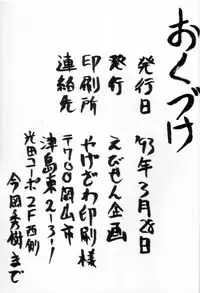 おくづけ
発行日 '93年3月28日
発行 えびせん企画
印刷所 やけざわ印刷様
連絡先 〒700岡山市
津島東2-3-1
光田コーポ2F西側
今岡秀樹まで